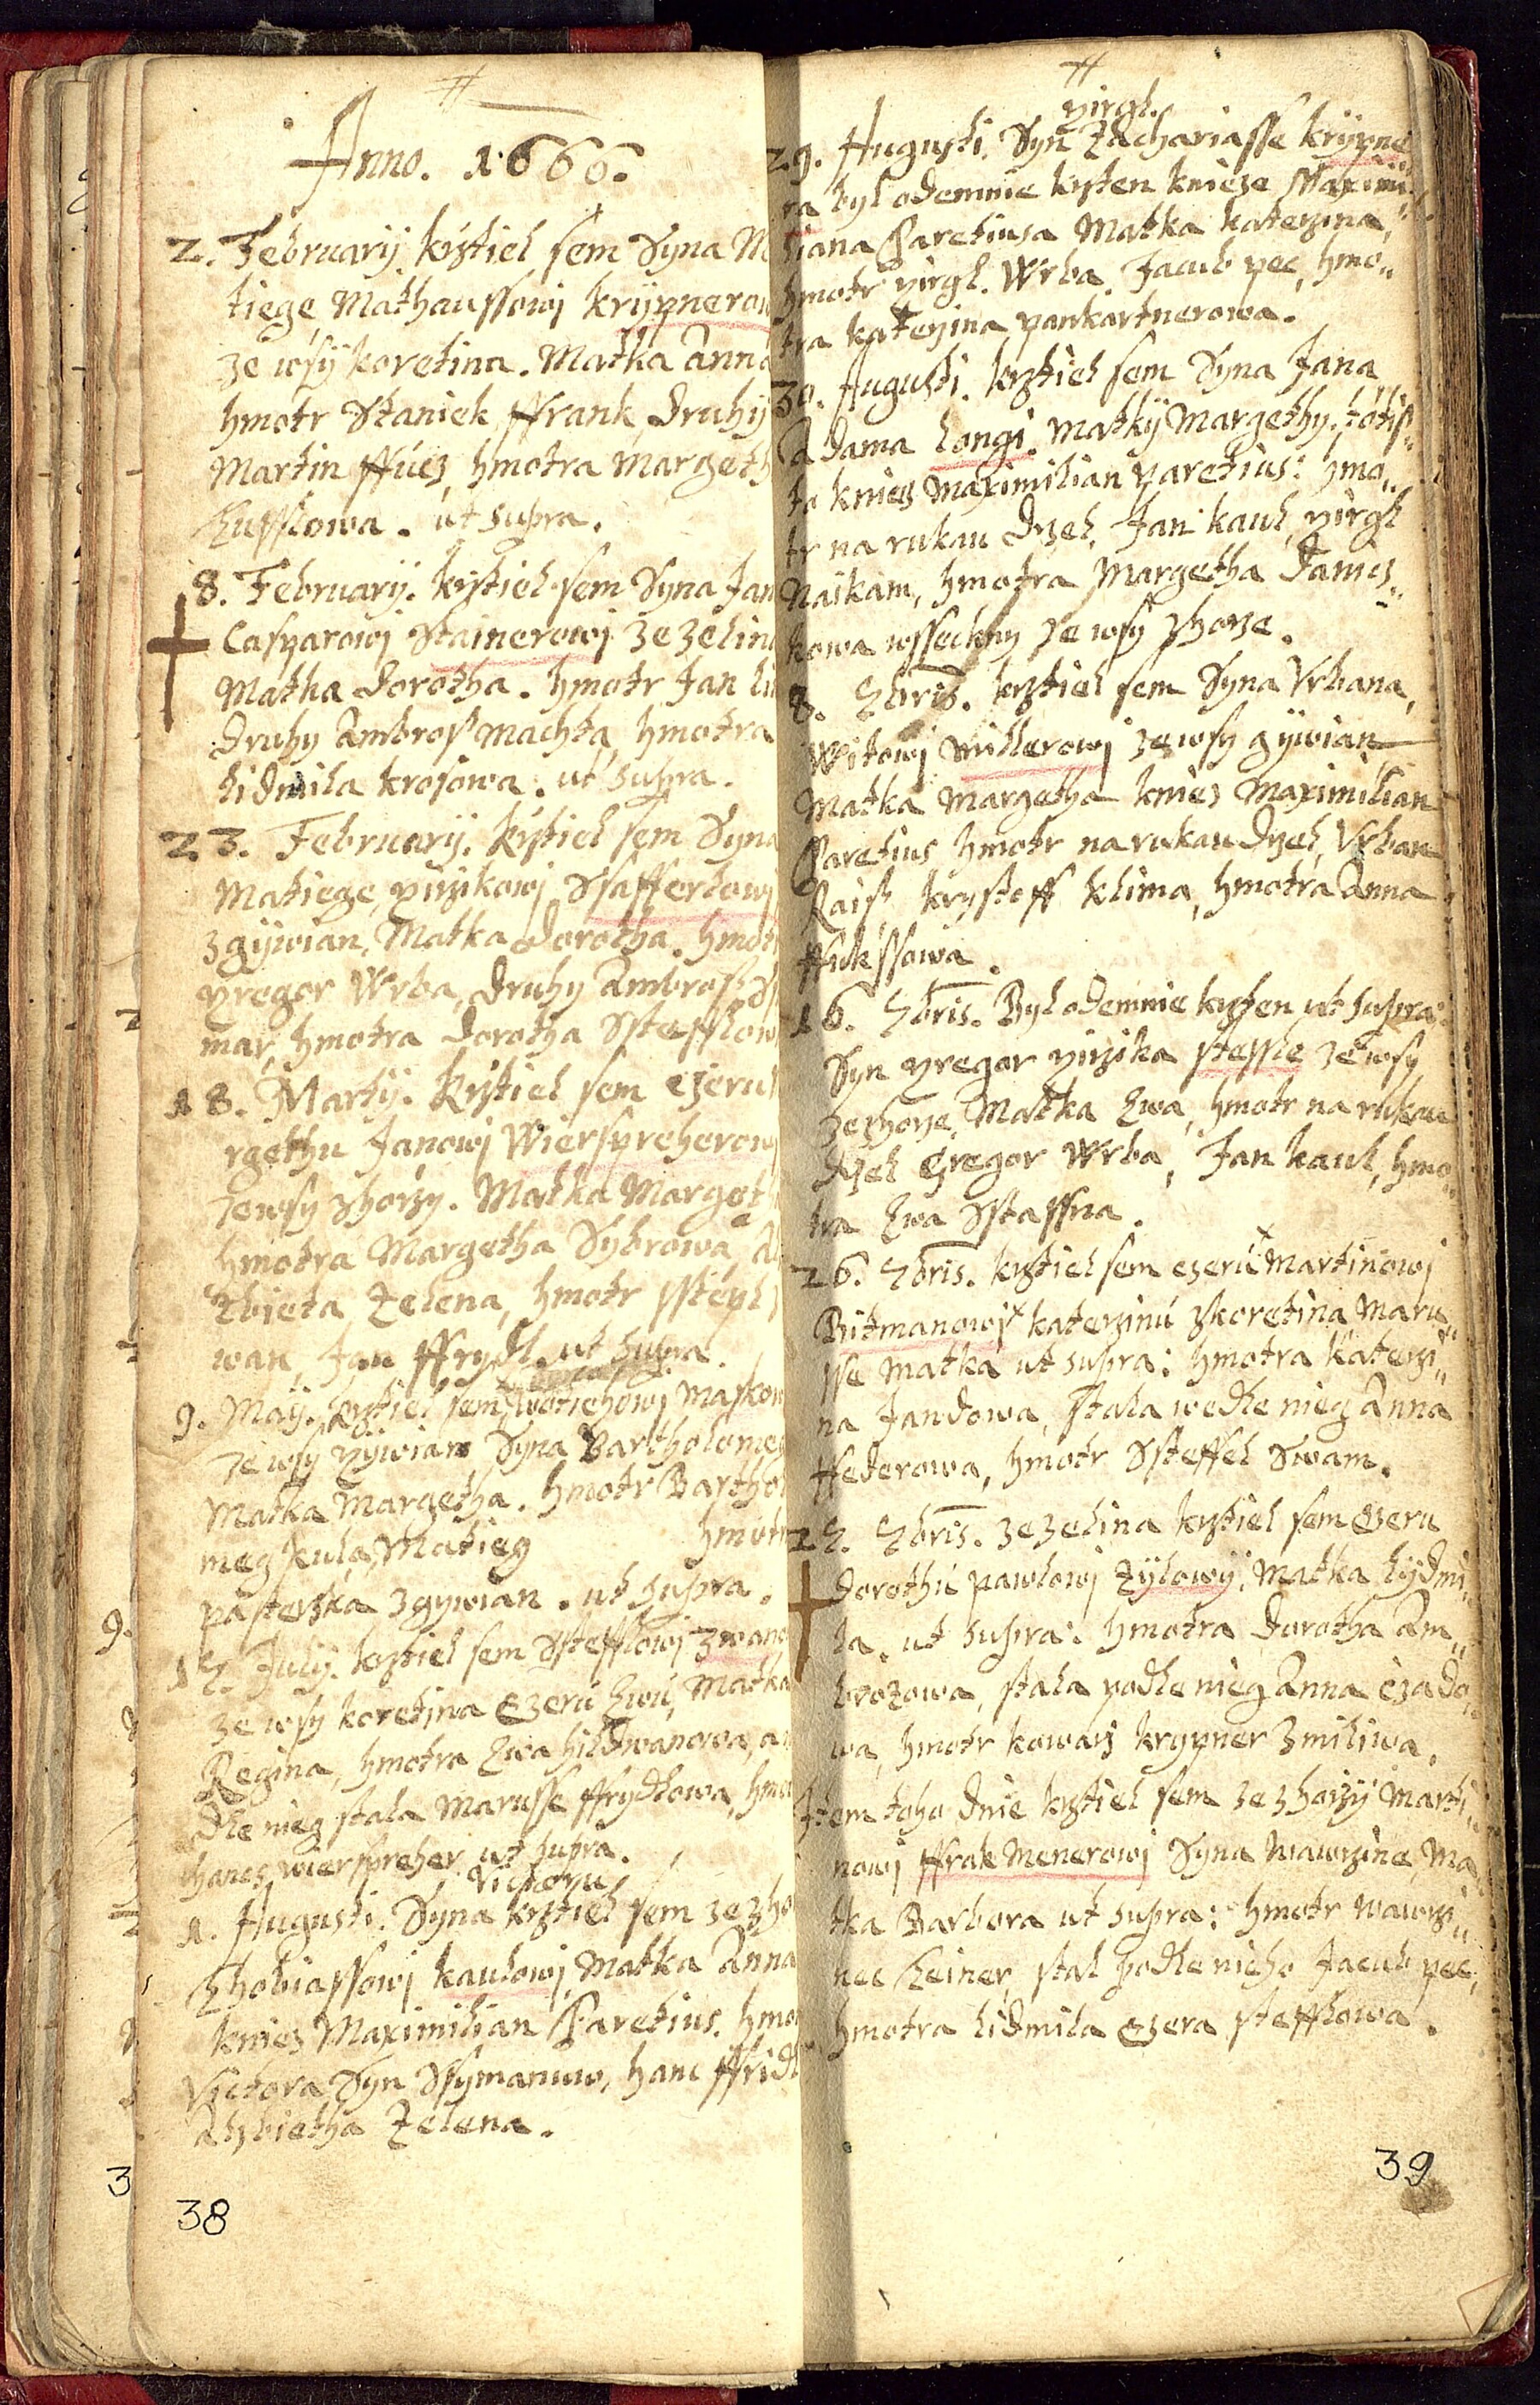 Anno. 1666.
2. February. krztiel sem Syna M
tiege, Mathaussowj krypnerow
ze wsy koretina. Matka Anna
hmotr Staniek ffrank, Druhy
Martin ffucz, hmotra Margeth
ut supra.
8. February. krztiel sem Syna Jan
Casparowj Stainerowj ze zelin
Matka Dorotha. hmotr Jan
Druhy Ambroß Machta, hmotra
Lidmila krosowa. ut supra.
23. February. krztiel sem Syna
Matiege, yirzikowj Ssafferlowj
z gywian, Matka Dorotha. hmotr
yregor Wrba, Druhy Ambroß
mar, hmotra Dorotha Ssteflow
18. Marty. krztiel sem czeru
rgethu Janowj Wierspreherow
ze wsy zhorzy. Matka Marget
hmotra Margetha Sybrowa, A
lzbieta Zelena, hmotr
wan, Jan ffrydl. ut supra.
9. May. krztiel sem woticzhowj Maskow
ze wsy yywian Syna Bartholomeg
Matka Margetha. hmotr Bartho
meg kula, Matieg hmotr
pasterzka z gywian. ut supra.
17. July. krztiel sem Ssteflowj zwano
ze wsy koretina Czeru Ewu, Matka
Regina, hmotra Ewa hildwanowa, a
dle nieg stala Marusse ffrydlowa, hmo
hanes wierspreher ut supra.
Victoru
1. Augusti. Syna krztiel sem ze zho
Thobiassowj kaulowj, Matka Anna
kniez Maximilian Paretius. hmo
Victora Syn Ssymanuw, hanc ffridl
Alzbietha Zelena.
38
yirgl.
29. Augusti. Syn Zachariasse krypne
ra byl odemnie krzten knieze Maximi
liana Paretiusa Matka katerzina,
hmotr yirgl. Wrba. Jacub pec, hmo
tra katerzina pankartnerowa.
30. Augusti. krztiel sem Syna Jana
Adama Longi. Matky Margethy. totiß
to kniez Maximilian paretius: hmo
tr na rukau Drzel, Jan kaul, yirgl
Naikam, hmotra Margetha Danis
kowa wsseckny ze wsy zhorze.
8. 7bris. krztiel sem Syna Vrbana,
Witowj Millerowj ze wsy gywian
Matka Margetha kniez Maximilian
Paretius hmotr na rukau Drzel, Vrban
Raiß, krystoff klima, hmotra Anna
ffukssowa.
16. 7bris. Byl odemnie krzten ut supra:
Syn yregor yirzika steffle ze wsy
ze zhorze, Matka Ewa, hmotr na rukau
drzel Gregor Wrba, Jan kaul, hmo
tra Ewa Sstassna.
26. 7bris. krztiel sem czeru Martinowj
Bitmanowj katerzinu z koretina Maru
sse Matka ut supra: hmotra katerzi
na Jandowa, stala wedle nieg Anna
ffederowa, hmotr Ssteffel Swam.
27. 7bris. ze zelina krztiel sem Czeru
Dorothu pawlowj Zylowy, Matka Lydmi
la. ut supra: hmotra Dorotha Am
brozowa, stala podle nieg Anna czado
wa, hmotr kowarz krypner z miliwa.
Item toho dnie krztiel sem ze zhorzy Marti
nowj ffrak Menerowj Syna Wawrzine, Ma
tka Barbora ut supra: hmotr Wawrzi
nec Leiner, stal podle nieho Jacub pec,
hmotra Lidmila Czera stefflowa.
39